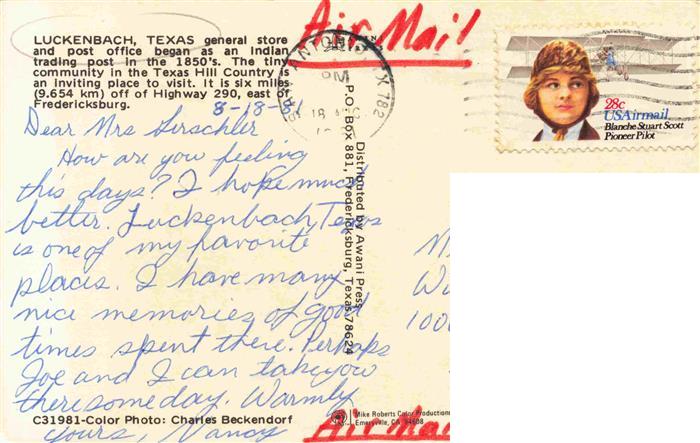 LUCKENBACH, TEXAS general store
and post office began as an Indian
trading post in the 1850's. The tiny
community in the Texas Hill Country is
an inviting place to visit. It is six miles
(9.654 km) off of Highway 290, east of
Fredericksburg.
8-18-81
Dear Mrs
How are you feeling
this days? I hope much
better. Luckenbach, Texas
is one of my favorite
places. I have many
nice memories of good
times spent there. Perhaps
Joe and I can take you
there some day. Warmly
Yours, Nancy
C31981-Color Photo: Charles Beckendorf
Distributed by Awani Press
P.O. Box 881, Fredericksburg, Texas 78624
Mike Roberts Color Productions
Emeryville, CA 94608
Air Mail
SAN ANTONIO TX 782
PM
18
28c
USAirmail
Blanche Stuart Scott
Pioneer Pilot
100
Air Mail